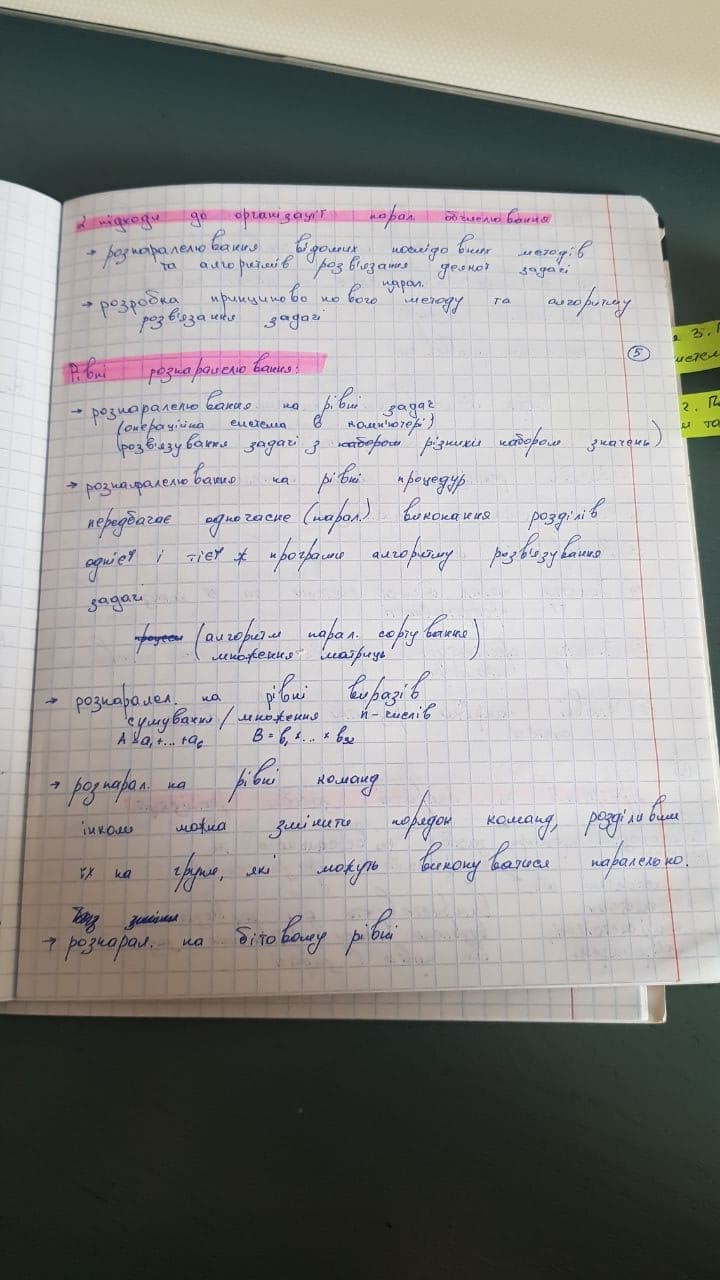 2 підходи до організації парал. обчислювання
→ розпаралелювання відомих послідовних методів
та алгоритмів розв'язання деякої задачі
парал.
→ розробка принципово нового методу та алгоритму
розв'язання задачі
5
Рівні розпаралелювання:
→ розпаралелювання на рівні задач
(операційна система в комп'ютері)
(розв'язування задачі з набором різними набором значень)
→ розпаралелювання на рівні процедур
передбачає одночасне (парал.) виконання розділів
однієї і тієї ж програми алгоритму розв'язування
задачі
(алгоритм парал. сортування)
множення матриць
→ розпаралел. на рівні виразів
сумування / множення n-числів
A = a₁ + ... + a₆ B = b₁ × ... × b₃₂
→ розпарал. на рівні команд
інколи можна змінити порядок команд, розділивши
їх на групи, які можуть виконуватися паралельно.
без зміни
→ розпарал. на бітовому рівні
я 3. П
истем
2. Па
и та